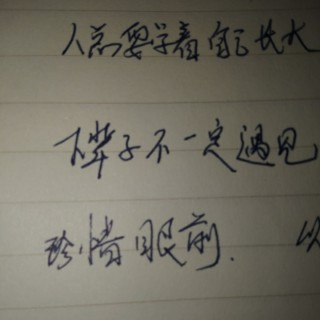 人总要学着自己长大
下辈子不一定遇见
珍惜眼前. 以